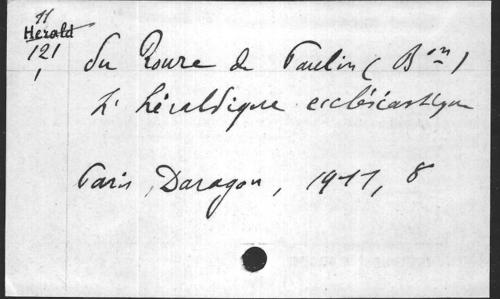 11
Herald
121
1
du Roure de Paulin (Bon)
L'héraldique ecclésiastique
Paris, Daragon, 1911, 8